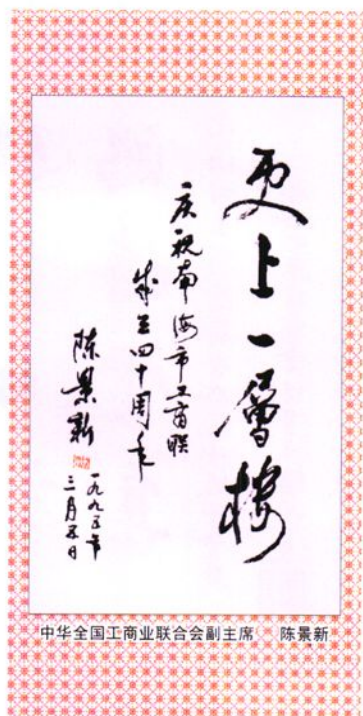 更上一层楼
庆祝南海市工商联
成立四十周年
陈景新
一九九五年
三月五日
中华全国工商业联合会副主席 陈景新